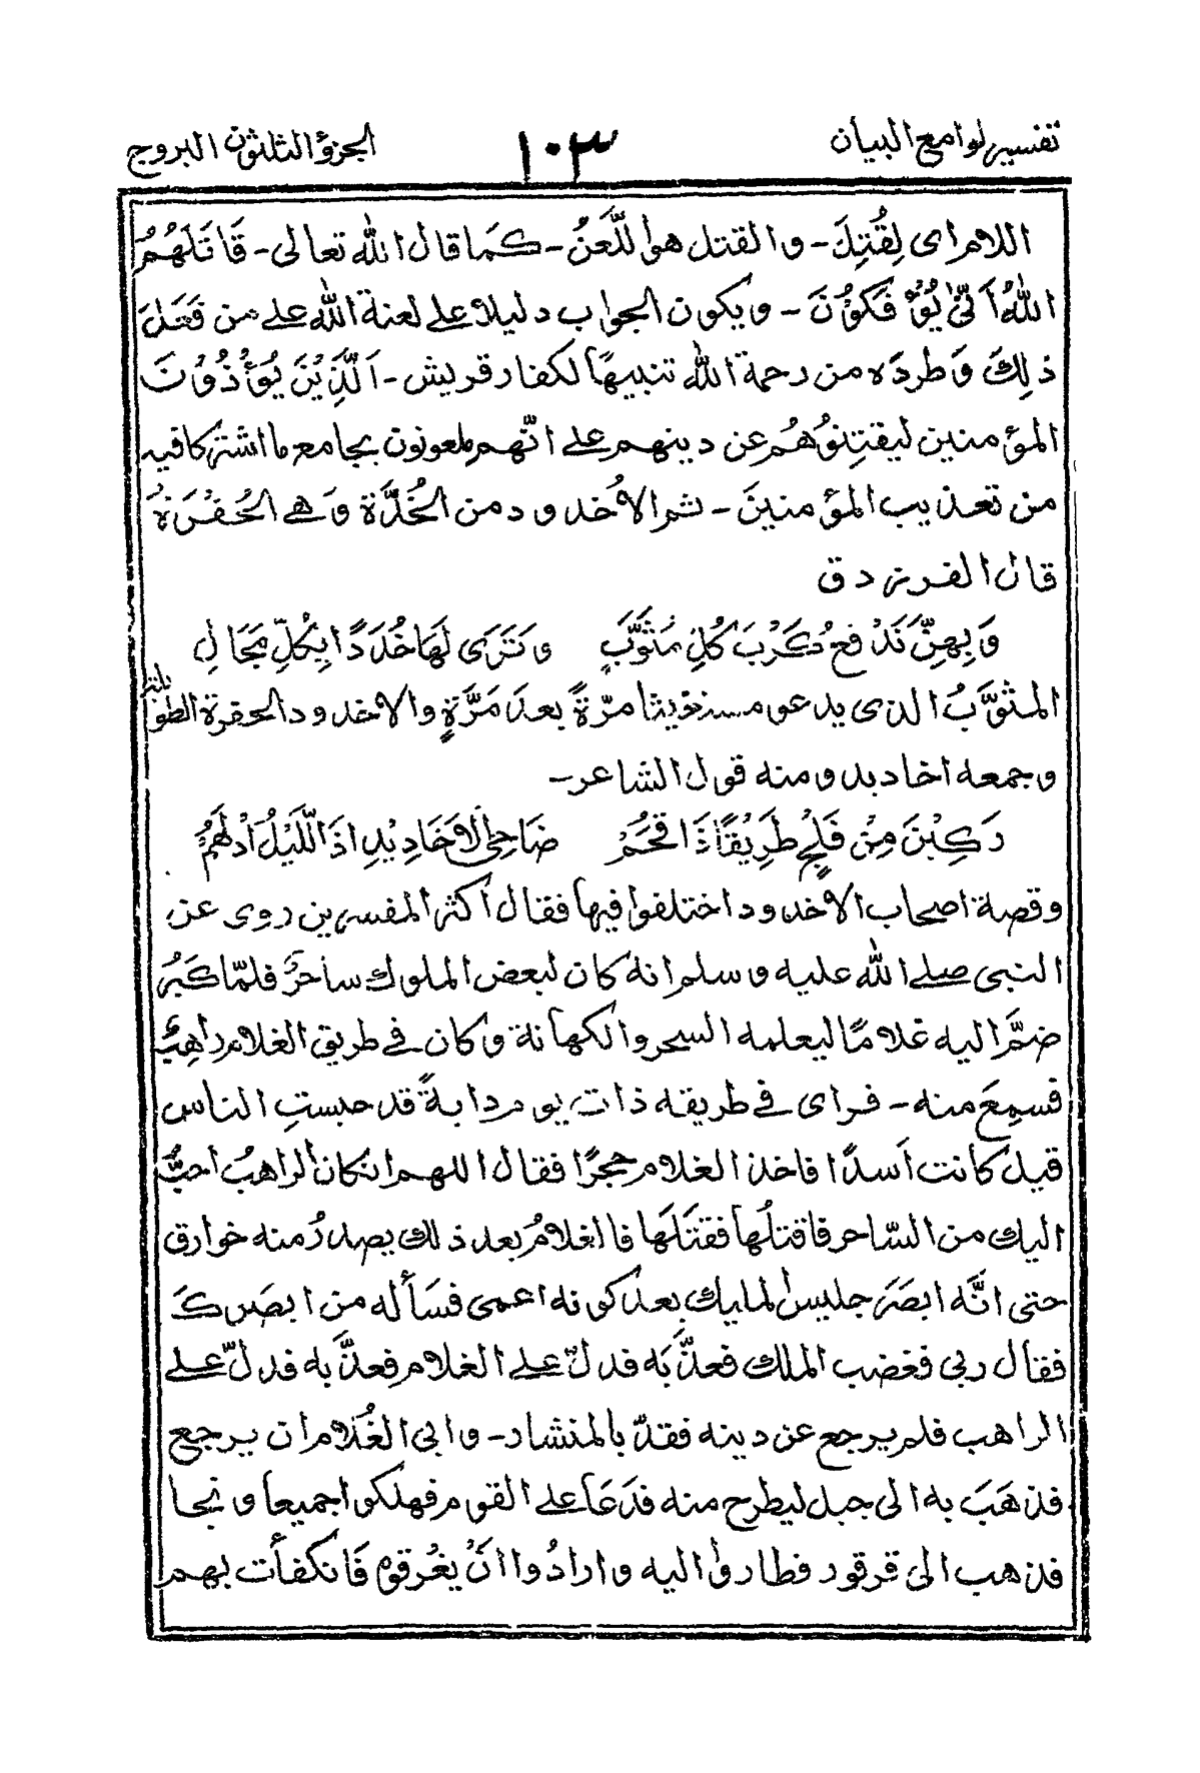 تفسير لوامع البيان
١٠٣
الجزؤ الثلثون البروج
اللام اى لِقُتِلَ - والقتل هو اللَّعنُ - كَمَا قال الله تعالى - قَاتَلَهُمُ
اللهُ اَنّٰى يُؤْفَكُوْنَ - ويكون الجواب دليلا على لعنة الله على من فَتَلَ
ذلِكَ وَطردَه من رحمة الله تنبيهًا لكفار قريش - اَلَّذِيْنَ يُوَأْذُوْنَ
المؤمنين ليفتِنُوْهُم عن دينهم على انّهم ملعونون بجامع ما اشتركا فيه
من تعذيب المؤمنينَ - ثم الاُخدود من الخُدَّة وَهى الحُفْرَةُ
قال الفرزدق
وَبِهِنَّ نَدْفعُ كَرْبَ كُلِّ مُثَوَّبٍ وَتَرَى لَهَا خُدَدًا بِكُلِّ مَجَالِ
المثوَّبُ الذى يدعو مستغيثا مرّةً بعدَ مَرَّةٍ والاخدود الحفرة الطويلة
وجمعه اخاديد ومنه قول الشاعر -
رَكِبْنَ مِنْ فَلْجٍ طَرِيْقًا ذَا قُحَمْ ضَاحِى الاَخَادِيْدِ اِذَا اللَّيْلُ اَدْلَهَمُّ
وقصة اصحاب الاخدود اختلفوا فيها فقال اكثر المفسرين روى عن
النبى صلى الله عليه وسلم انه كان لبعض الملوك ساحرٌ فلمّا كَبُرَ
ضمَّ اليه غلامًا ليعلمه السحر والكهانة وكان فى طريق الغلام راهِبٌ
فسمِعَ منه - فراى فى طريقه ذات يوم دابةً قد حبستِ الناس
قيل كانت اَسدًا فاخذ الغلام حجرًا فقال اللهم ان كان الراهبُ احبُّ
اليك من السّاحر فاقتلْها فقتَلَها فالغلامُ بعد ذلك يصدرُ منه خوارق
حتى انَّه ابصَرَ جليس المليك بعد كونه اعمى فسَأله من ابصرك
فقال ربى فغضب الملك فعذّبَه فدلّ على الغلام فعذَّبه فدلّ على
الراهب فلم يرجع عن دينه فقدّ بالمنشار - وابى الغُلام ان يرجع
فذهَبَ به الى جبل ليطرح منه فدَعَا على القوم فهلكوا جميعا ونجا
فذهب الى قرقور فطاروا اليه وارادُوا انْ يغْرقوه فَانكفأت بهم